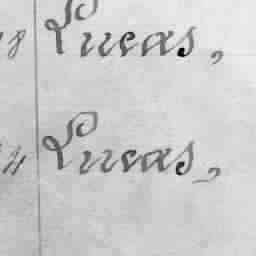 8 Lucas,
4 Lucas,